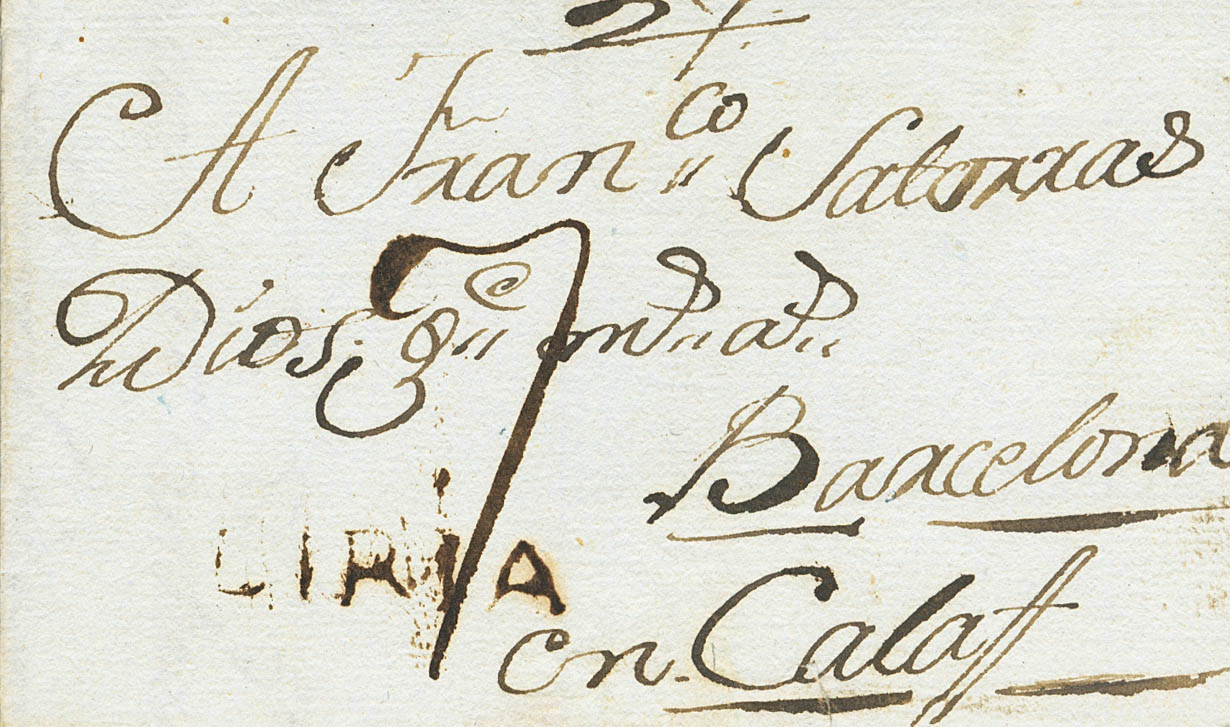 A Fran.co Satorras
Dios g.e m.s a.s
7
Barcelona
LIRIA
en Calaff